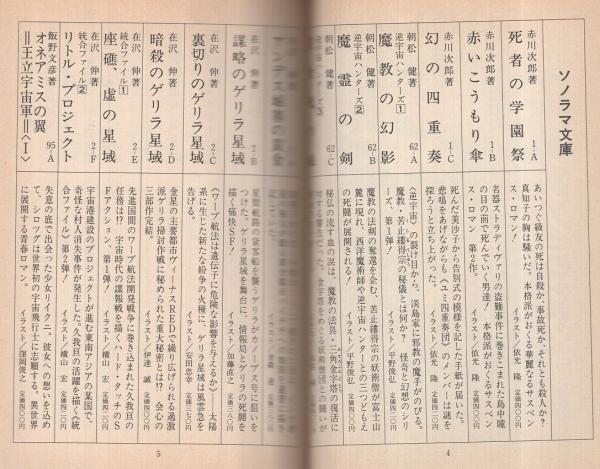 ソノラマ文庫
赤川次郎著
死者の学園祭 1-A
あいつぐ級友の死は自殺か、事故死か、それとも殺人か？
真知子の胸は騒いだ。本格派がおくる華麗なるサスペン
ス・ロマン！ イラスト／依光 隆 定価四二〇円
赤川次郎著
赤いこうもり傘 1-B
名器ストラディヴァリの盗難事件に巻きこまれた島中瞳
の目の前で死んでいく男達！ 本格派がおくるサスペン
ス・ロマン 第2作。 イラスト／依光 隆
赤川次郎著
幻の四重奏 1-C
死んだ美沙子から告別式の模様を記した手紙が届いた。
悲鳴をあげながらも〈ユミ四重奏団〉のメンバーは謎を
探ろうと立ち上がった。 イラスト／依光 隆
朝松 健著
逆宇宙ハンターズ1
魔教の幻影 62-A
〈逆宇宙〉の裂け目から、淡島家に邪教の魔手がのびる。
魔教・苦止縷得宗の秘儀とは何か？ 怪奇と幻想のシリ
ーズ、第1弾！ イラスト／平野俊弘
朝松 健著
逆宇宙ハンターズ2
魔霊の剣 62-B
魔教の法剣の奪還を企む、苦止縷得宗の妖術僧が富士山
麓に現れ、西洋魔術師や逆宇宙ハンターとの三つどもえ
の死闘が展開される！ イラスト／平野俊弘
朝松 健著
62-C
秘仏の流す血の涙は、魔教の法具・三角金字塔の復活に
4
在沢 伸著
謀略のゲリラ星域 2-B
星間航路の貨客船を襲うゲリラがカノープス軒に狙いを
つけた。ゲリラ星域を舞台に、情報局とゲリラの死闘を
描く痛快SF！ イラスト／加藤直之 定価三八〇円
在沢 伸著
裏切りのゲリラ星域 2-C
〈ワープ航法は遺伝子に危険な影響を与えるか〉 太陽
系に生じた新たな紛争の火種に、ゲリラ星域は風雲急を
告げる。 イラスト／安田忠幸 定価三六〇円
在沢 伸著
暗殺のゲリラ星域 2-D
金星の主要都市ヴィーナスREDで繰り広げられる過激
派ゲリラ掃討作戦に秘められた重大秘密とは!? 会心の
三部作完結。 イラスト／伊達 誠 定価四〇〇円
在沢 伸著
統合ファイル1
座礁、虚の星域 2-E
先進国間のワープ航法開発戦争に巻き込まれた久我亘の
任務は!? 宇宙時代の諜報戦を描くハード・タッチのS
Fアクション、第1弾！ イラスト／横山 宏
在沢 伸著
統合ファイル2
リトル・プロジェクト 2-F
宇宙港建設のプロジェクトが進む東南アジアの某国で、
奇怪な村人消失事件が発生した。久我亘の活躍を描く〈統
合ファイル〉第2弾！ イラスト／横山 宏
飯野文彦著
オネアミスの翼 95-A
＝王立宇宙軍＝〈I〉
失意の底で出会った少女リイクニ。彼女への想いを込め
て、シロツグは世界初の宇宙飛行士に志願する。異世界
に展開する青春ロマン。 イラスト／窪岡俊之
5